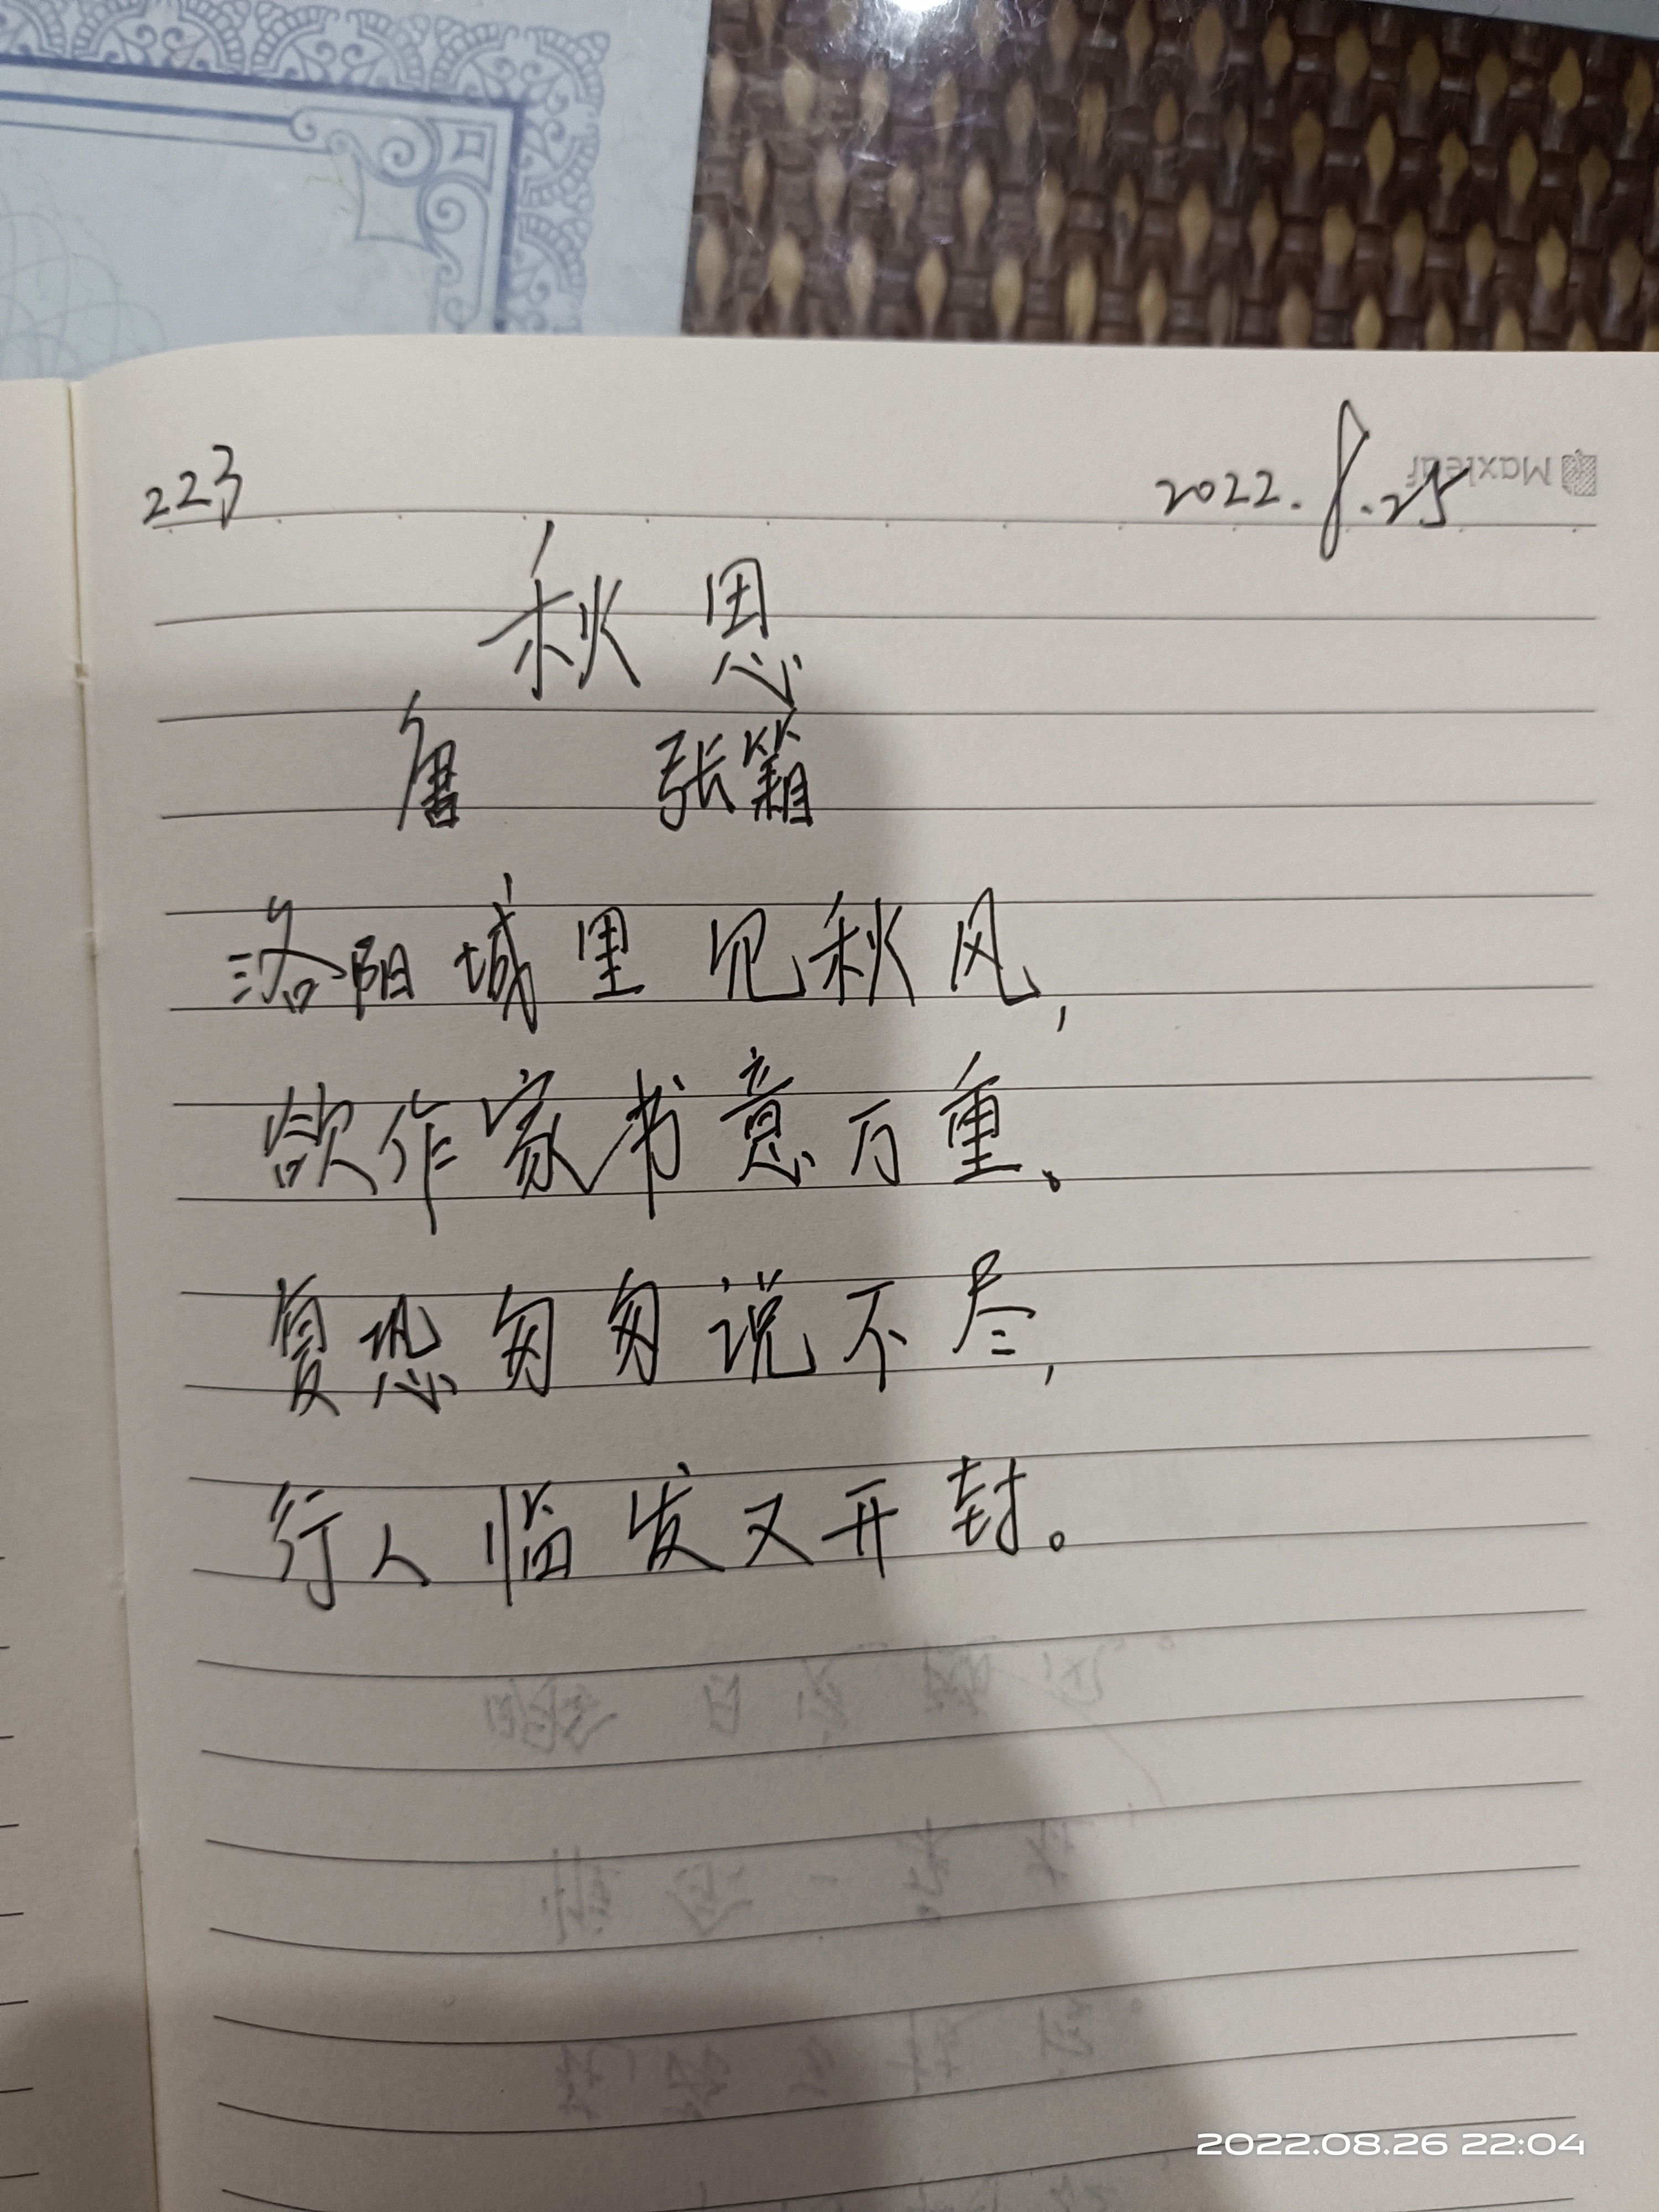 223 2022.8.25
Maxleaf
秋思
唐 张籍
洛阳城里见秋风,
欲作家书意万重。
复恐匆匆说不尽,
行人临发又开封。
2022.08.26 22:04